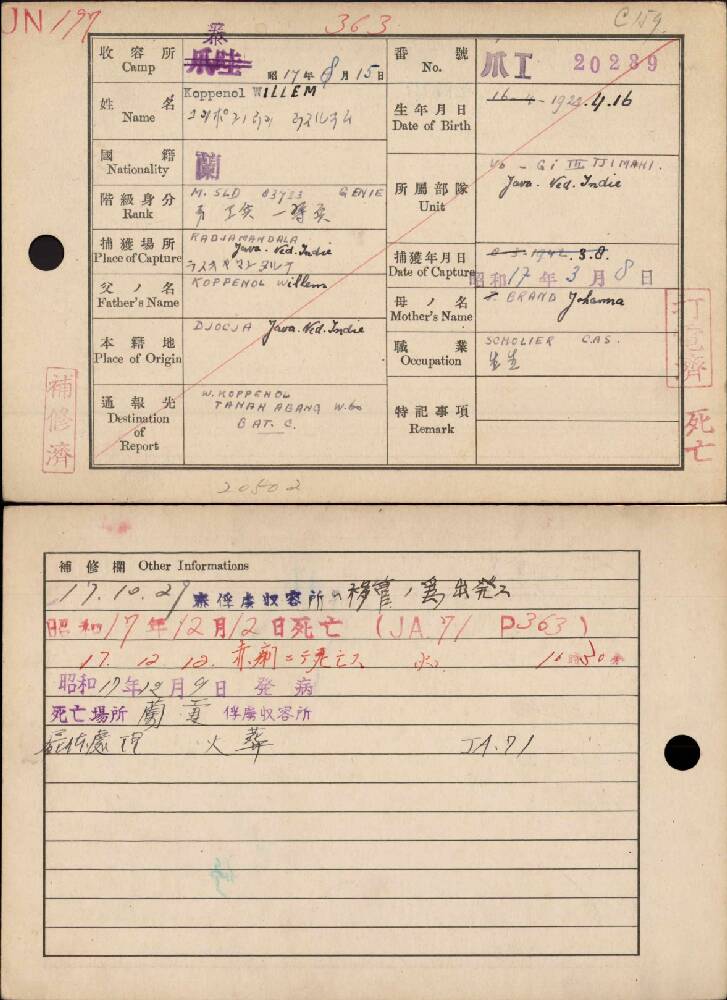 JN 197
363
C 159
泰
爪哇
收容所
Camp
昭17年8月15日
番號
No.
爪I 20289
姓名
Name
Koppenol WILLEM
生年月日
Date of Birth
16-4-1922.4.16
國籍
Nationality
蘭
階級身分
Rank
M. SLD 83733 GENIE
所屬部隊
Unit
Vb - Gi III TJIMAHI.
Java. Ned. Indie
捕獲場所
Place of Capture
RADJAMANDALA
Java. Ned. Indie
捕獲年月日
Date of Capture
8-3-1942.3.8.
昭和17年3月8日
父ノ名
Father's Name
KOPPENOL Willem
母ノ名
Mother's Name
BRAND Johanna
本籍地
Place of Origin
DJOCJA Java. Ned. Indie
職業
Occupation
SCHOLIER C.A.S.
通報先
Destination
of
Report
W. KOPPENOL
TANAH ABANG W. 60
BAT. C.
特記事項
Remark
補修濟
死亡
20502
補修欄 Other Informations
17.10.29 泰俘虜収容所ヘ移管ノ為出発ス
昭和17年12月12日死亡 (JA.71 P363)
17. 12 12. 赤痢ニテ死亡ス
昭和17年12月9日発病
死亡場所 俘虜収容所
火葬 JA.71